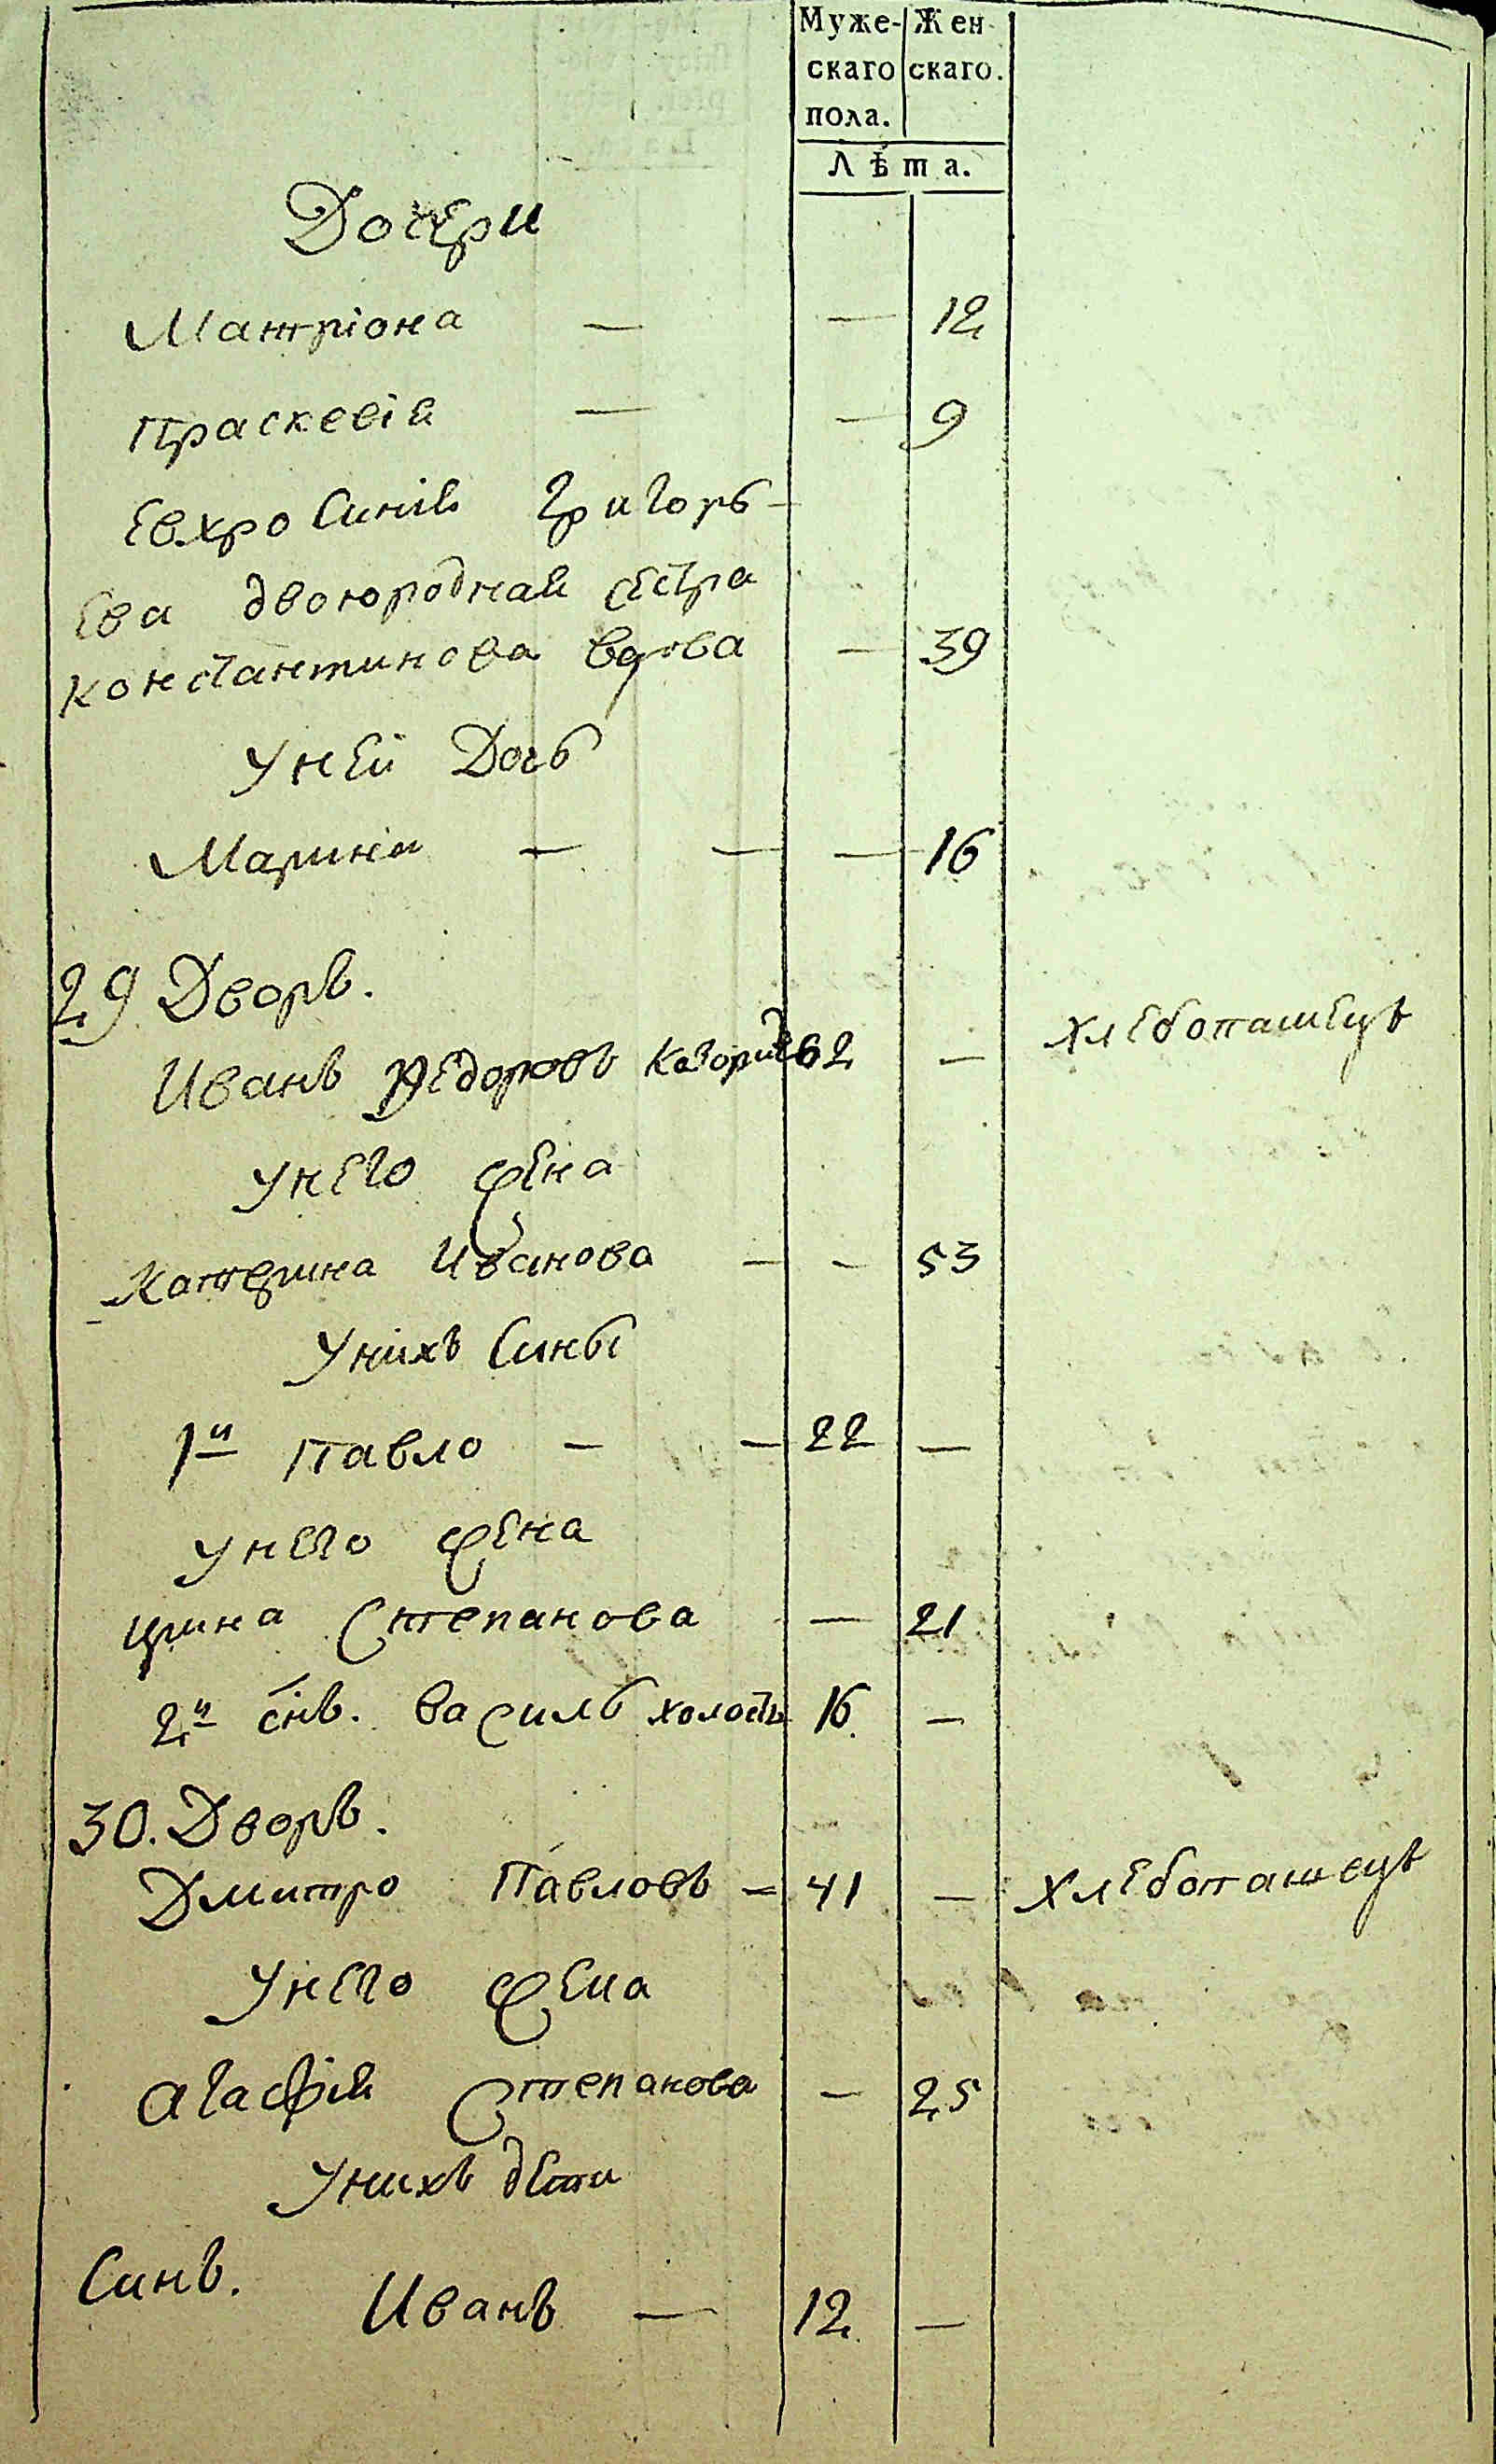 Муже- Жен-
скаго скаго.
пола.
Лѣта.
Дочери
Матрiона — — 12
Праскевiя — — 9
Евхросинiя Григорь-
ева двоюродная сестра
константинова вдова — 39
Уней Дочь
Марина — — — 16
29 Дворъ.
Иванъ Федоровъ 62 — хлебопашецъ
Унего жена
Катерина Иванова — — 53
Унихъ Сины
1й Павло — — 22 —
Унего жена
ирина Степанова — 21
2й снъ. василь холостъ 16 —
30. Дворъ.
Дмитро Павловъ — 41 — хлебопашецъ
Унего жена
Агафiя Степанова — 25
Унихъ дети
Синъ. Иванъ — 12 —